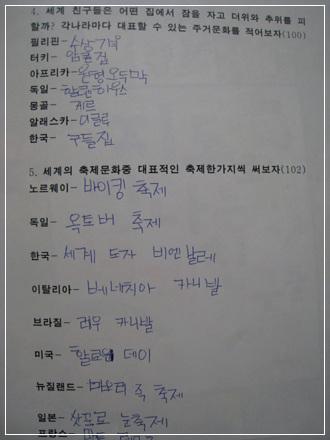 4. 세계 친구들은 어떤 집에서 잠을 자고 더위와 추위를 피
할까? 각나라마다 대표할 수 있는 주거문화를 적어보자(100)
필리핀- 수상가옥
터키- 암굴집
아프리카- 원형오두막
독일- 할렌하우스
몽골- 게르
알래스카- 이글루
한국- 구들집
5. 세계의 축제문화중 대표적인 축제한가지씩 써보자(102)
노르웨이- 바이킹 축제
독일- 옥토버 축제
한국- 세계 도자 비엔날레
이탈리아- 베네치아 카니발
브라질- 리우 카니발
미국- 할로윈 데이
뉴질랜드- 마오리 족 축제
일본- 삿포로 눈축제
프랑스-